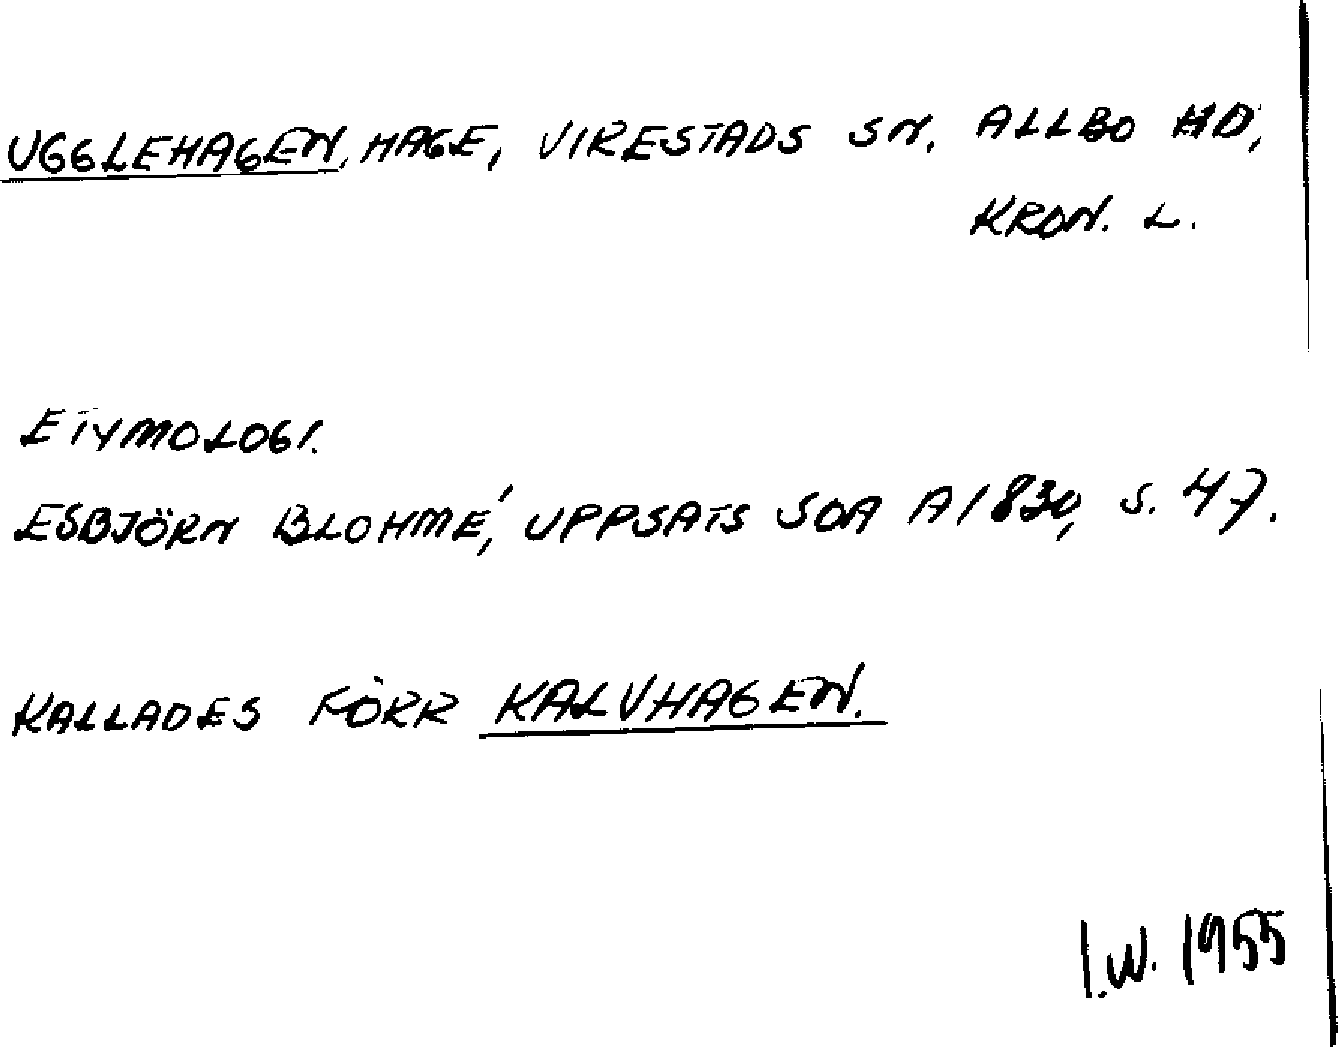 UGGLEHAGEN, HAGE, VIRESTADS SN. ALLBO HD,
KRON. L.
ETYMOLOGI.
ESBJÖRN BLOHMÉ, UPPSATS SOA A1830, S. 47.
KALLADES FÖRR KALVHAGEN.
I.W. 1955